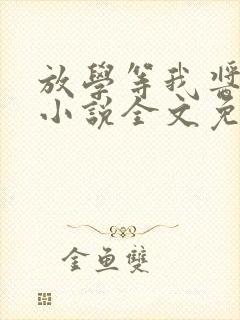 放學等我醬
小說全文免
金魚雙